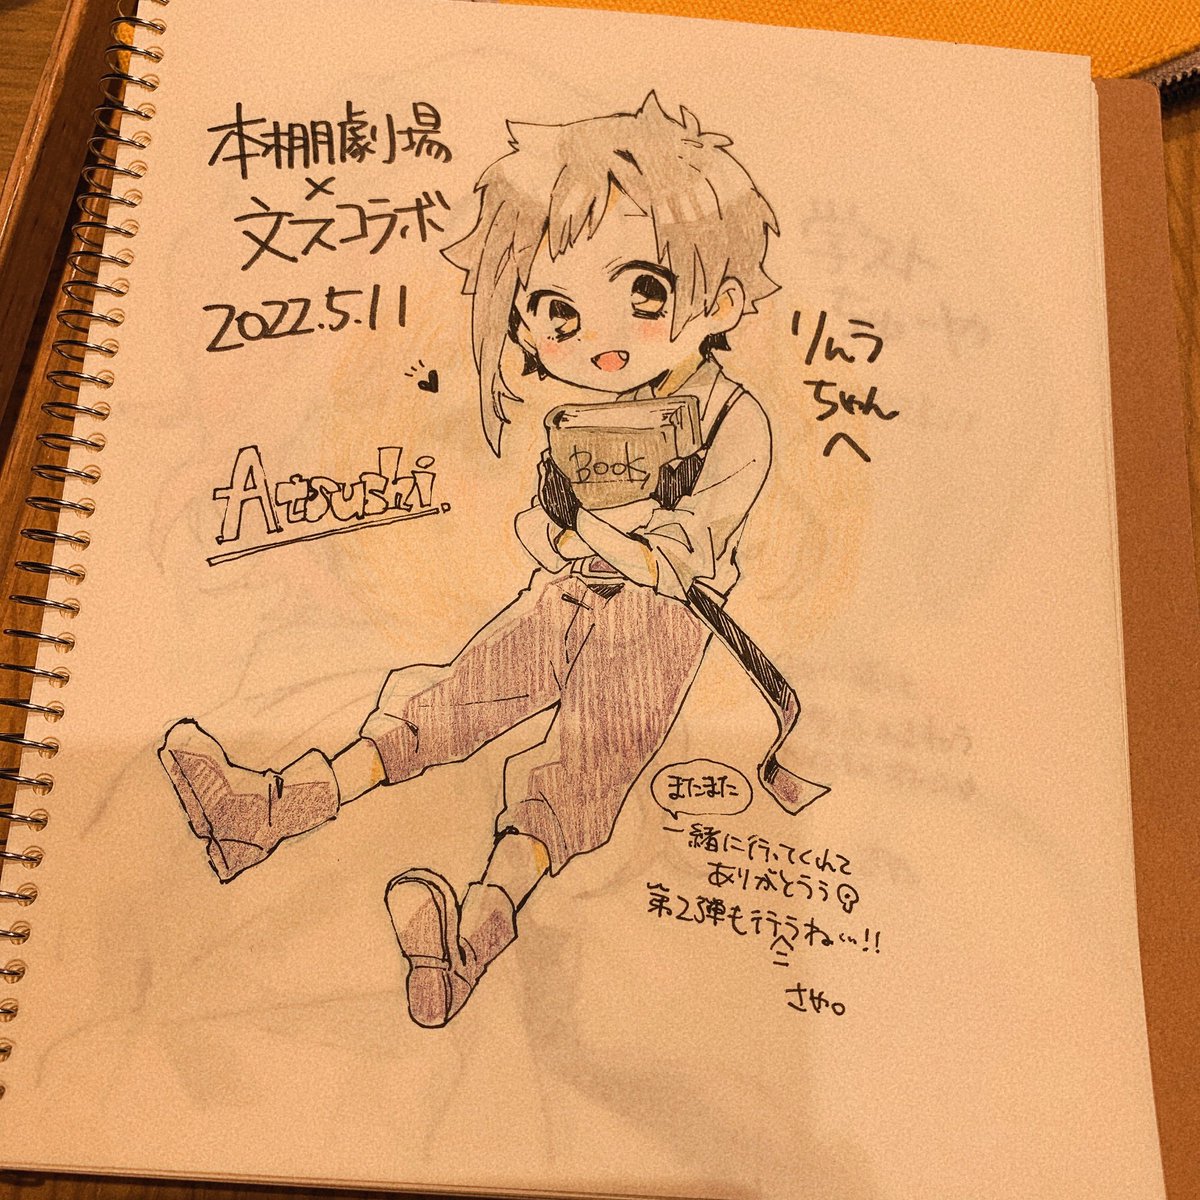 本棚劇場
×
文スコラボ
2022.5.11
Atsushi.
BOOK
りんう
ちゃん
へ
またまた
一緒に行ってくれて
ありがとうぅ
第2弾も行こうね〜!!
さや。